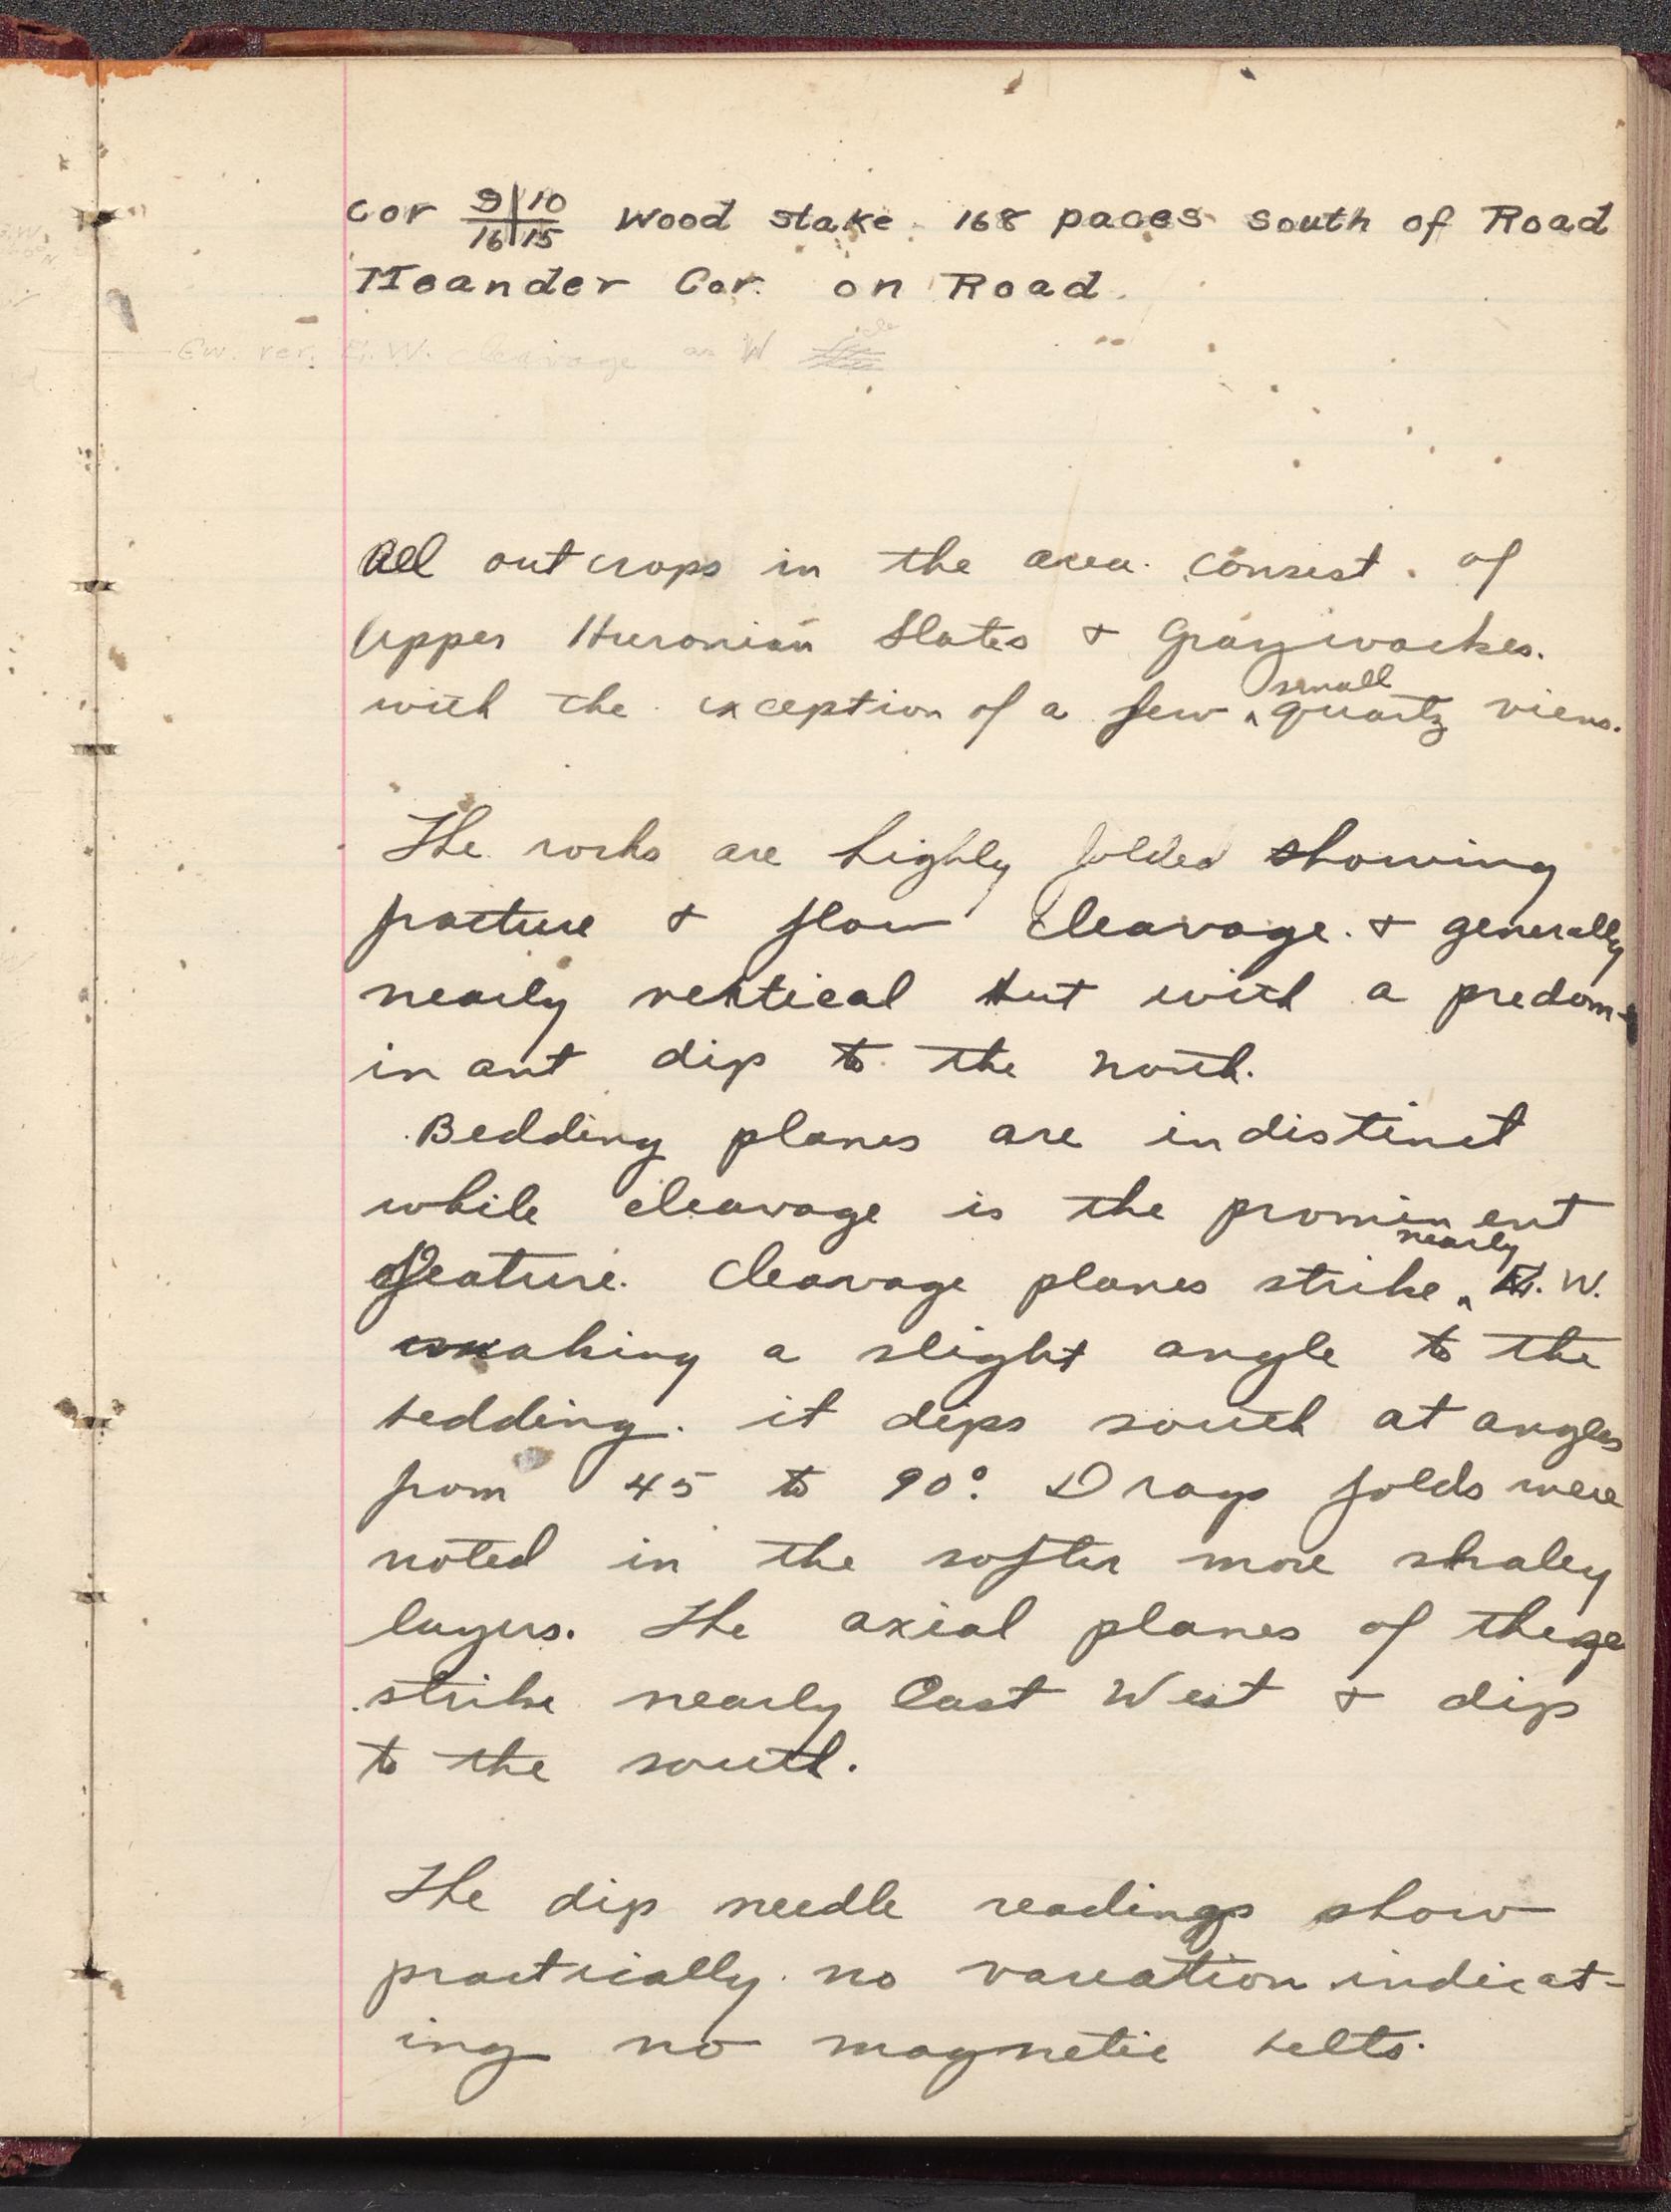 Cor 9|10 Wood stake. 168 paces south of Road
16|15
Meander Cor. on Road.
E. W. Cleavage
All outcrops in the area consist of
Upper Huronian Slates & Graywackes.
small
with the exception of a few ‸ quartz viens.
The rocks are highly folded showing
fracture & flow cleavage. & generally
nearly vertical but with a predom-
inant dip to the north.
Bedding planes are indistinct
while cleavage is the prominent
nearly
feature. Cleavage planes strike ‸ E. W.
making a slight angle to the
bedding. it dips south at angles
from 45 to 90°. Drag folds were
noted in the softer more shaley
layers. The axial planes of these
strike nearly East West & dip
to the south.
The dip needle readings show
practically no variation indicat-
ing no magnetic belts.